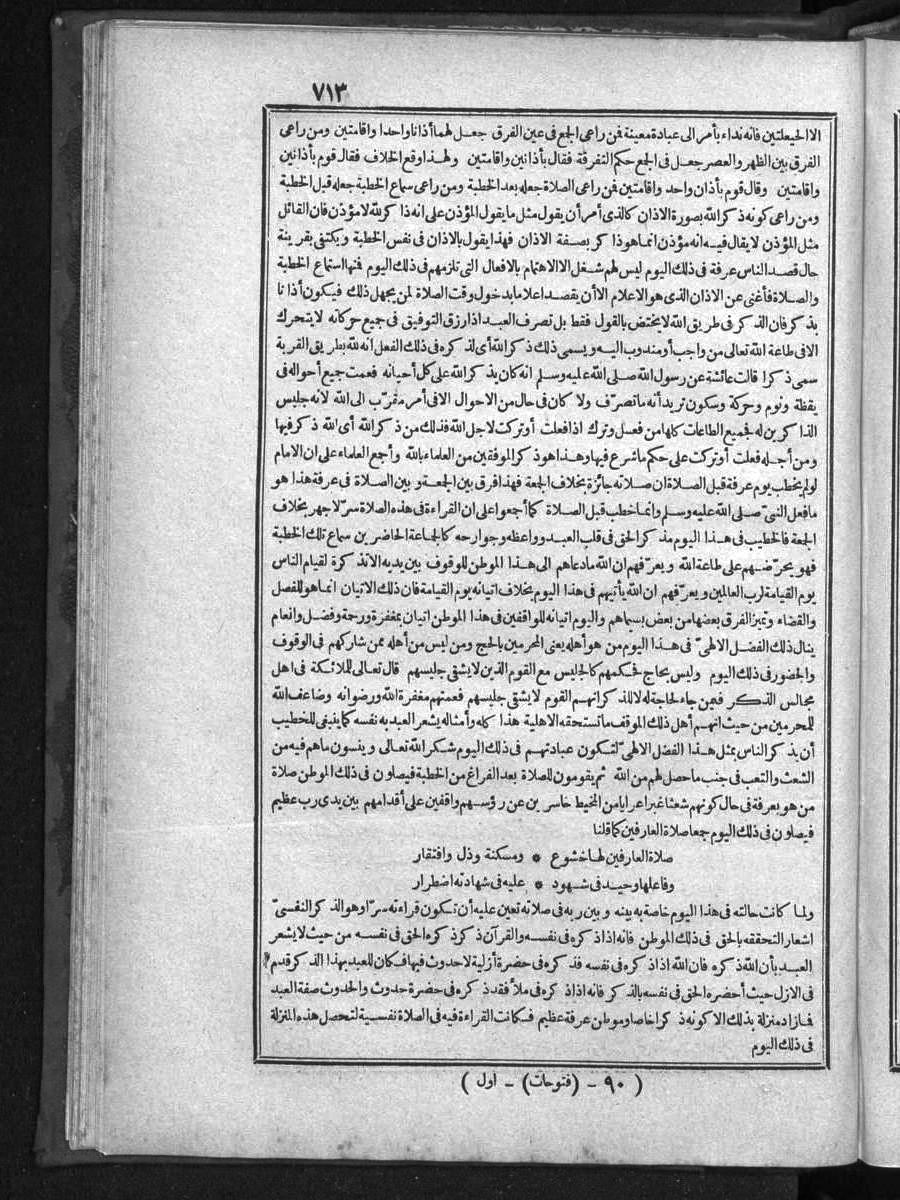 ٧١٣
الا الحيعلتين فانه نداء بأمر الى عبادة معينة فن راعى الجع فى عين الفرق جعل لهما أذانا واحدا واقامتين ومن راعى
الفرق بين الظهر والعصر جعل فى الجع حكم التفرقة فقال بأذانين واقامتين ولهذا وقع الخلاف فقال قوم بأذانين
واقامتين وقال قوم بأذان واحد واقامتين فن راعى الصلاة جعله بعد الخطبة ومن راعى سماع الخطبة جعله قبل الخطبة
ومن راعى كونه ذكر الله بصورة الاذان كالذى أمر أن يقول مثل ما يقول المؤذن على انه ذاكر لله لا مؤذن فان القائل
مثل المؤذن لا يقال فيه انه مؤذن انما هو ذاكر بصفة الاذان فهذا يقول بالاذان فى نفس الخطبة ويكتفى بقرينة
حال قصد الناس عرفة فى ذلك اليوم ليس لهم شغل الا الاهتمام بالافعال التى تلزمهم فى ذلك اليوم فنها استماع الخطبة
والصلاة فأغنى عن الاذان الذى هو الاعلام الا أن يقصد اعلاما بدخول وقت الصلاة لمن يجهل ذلك فيكون أذانا
بذكر فان الذكر فى طريق الله لا يختص بالقول فقط بل تصرف العبد اذا رزق التوفيق فى جميع حركاته لا يتحرك
الا فى طاعة الله تعالى من واجب أو مندوب اليه ويسمى ذلك ذكر الله أى لذكره فى ذلك الفعل انه لله بطريق القربة
سمى ذكرا قالت عائشة عن رسول الله صلى الله عليه وسلم انه كان يذكر الله على كل أحيانه فعمت جميع أحواله فى
يقظة ونوم وحركة وسكون تريد أنه ما تصرّف ولا كان فى حال من الاحوال الا فى أمر مقرّب الى الله لانه جليس
الذاكرين له فجميع الطاعات كلها من فعل وترك اذا فعلت أو تركت لاجل الله فذلك من ذكر الله أى الله ذكر فيها
ومن أجله فعلت أو تركت على حكم ما شرع فيها وهذا هو ذكر الموفقين من العلماء بالله وأجع العلماء على ان الامام
لو لم يخطب يوم عرفة قبل الصلاة ان صلاته جائزة بخلاف الجعة فهذا فرق بين الجعة و بين الصلاة فى عرفة هذا هو
ما فعل النبىّ صلى الله عليه وسلم وانما خطب قبل الصلاة كما أجعوا على ان القراءة فى هذه الصلاة سرّ لا جهر بخلاف
الجعة فالخطيب فى هذا اليوم مذكر الحق فى قلب العبد وواعظه وجوارحه كالجاعة الحاضرين سماع تلك الخطبة
فهو يحرّضهم على طاعة الله ويعرّفهم ان الله ما دعاهم الى هذا الموطن للوقوف بين يديه الا تذكرة لقيام الناس
يوم القيامة لرب العالمين ويعرّفهم ان الله يأتيهم فى هذا اليوم بخلاف اتيانه يوم القيامة فان ذلك الاتيان انما هو للفصل
والقضاء وتميز الفرق بعضها من بعض بسيماهم واليوم اتيانه للواقفين فى هذا الموطن اتيان بمغفرة ورحة وفضل وانعام
ينال ذلك الفضل الالهىّ فى هذا اليوم من هو أهله يعنى المحرمين بالحج ومن ليس من أهله ممن شاركهم فى الوقوف
والحضور فى ذلك اليوم وليس بحاج فحكمهم كالجليس مع القوم الذين لا يشقى جليسهم قال تعالى للملائكة فى اهل
مجالس الذكر فمن جاء لحاجته لا للذكر انهم القوم لا يشقى جليسهم فعمتهم مغفرة الله ورضوانه وضاعف الله
للمحرمين من حيث انهم أهل ذلك الموقف ما تستحقه الاهلية هذا كله وأمثاله يشعر العبد به نفسه كما ينبغى للخطيب
أن يذكر الناس بمثل هذا الفضل الالهىّ لتكون عبادتهم فى ذلك اليوم شكر الله تعالى وينسون ما هم فيه من
الشعث والتعب فى جنب ما حصل لهم من الله ثم يقومون للصلاة بعد الفراغ من الخطبة فيصلون فى ذلك الموطن صلاة
من هو بعرفة فى حال كونهم شعثا غبرا عرايا من المخيط حاسرين عن رؤسهم واقفين على أقدامهم بين يدى رب عظيم
فيصلون فى ذلك اليوم جعا صلاة العارفين كما قلنا
صلاة العارفين لها خشوع * ومسكنة وذل وافتقار
وفاعلها وحيد فى شهود * عليه فى شهادته اضطرار
ولما كانت حالته فى هذا اليوم خاصة به بينه وبين ربه فى صلاته تعين عليه أن تكون قراءته سرّا وهو الذكر النفسىّ
اشعار التحققه بالحق فى ذلك الموطن فانه اذا ذكره فى نفسه والقرآن ذكر ذكره الحق فى نفسه من حيث لا يشعر
العبد بأن الله ذكره فان الله اذا ذكره فى نفسه فقد ذكره فى حضرة أزلية لا حدوث فيها فكان للعبد بهذا الذكر قدم
فى الازل حيث أحضره الحق فى نفسه بالذكر فانه اذا ذكره فى ملأ فقد ذكره فى حضرة حدوث والحدوث صفة العبد
فما زاد منزلة بذلك الا كونه ذكرا خاصا وموطن عرفة عظيم فكانت القراءة فيه فى الصلاة نفسية لتحصل هذه المنزلة
فى ذلك اليوم
( ٩٠ - (فتوحات) - اول )